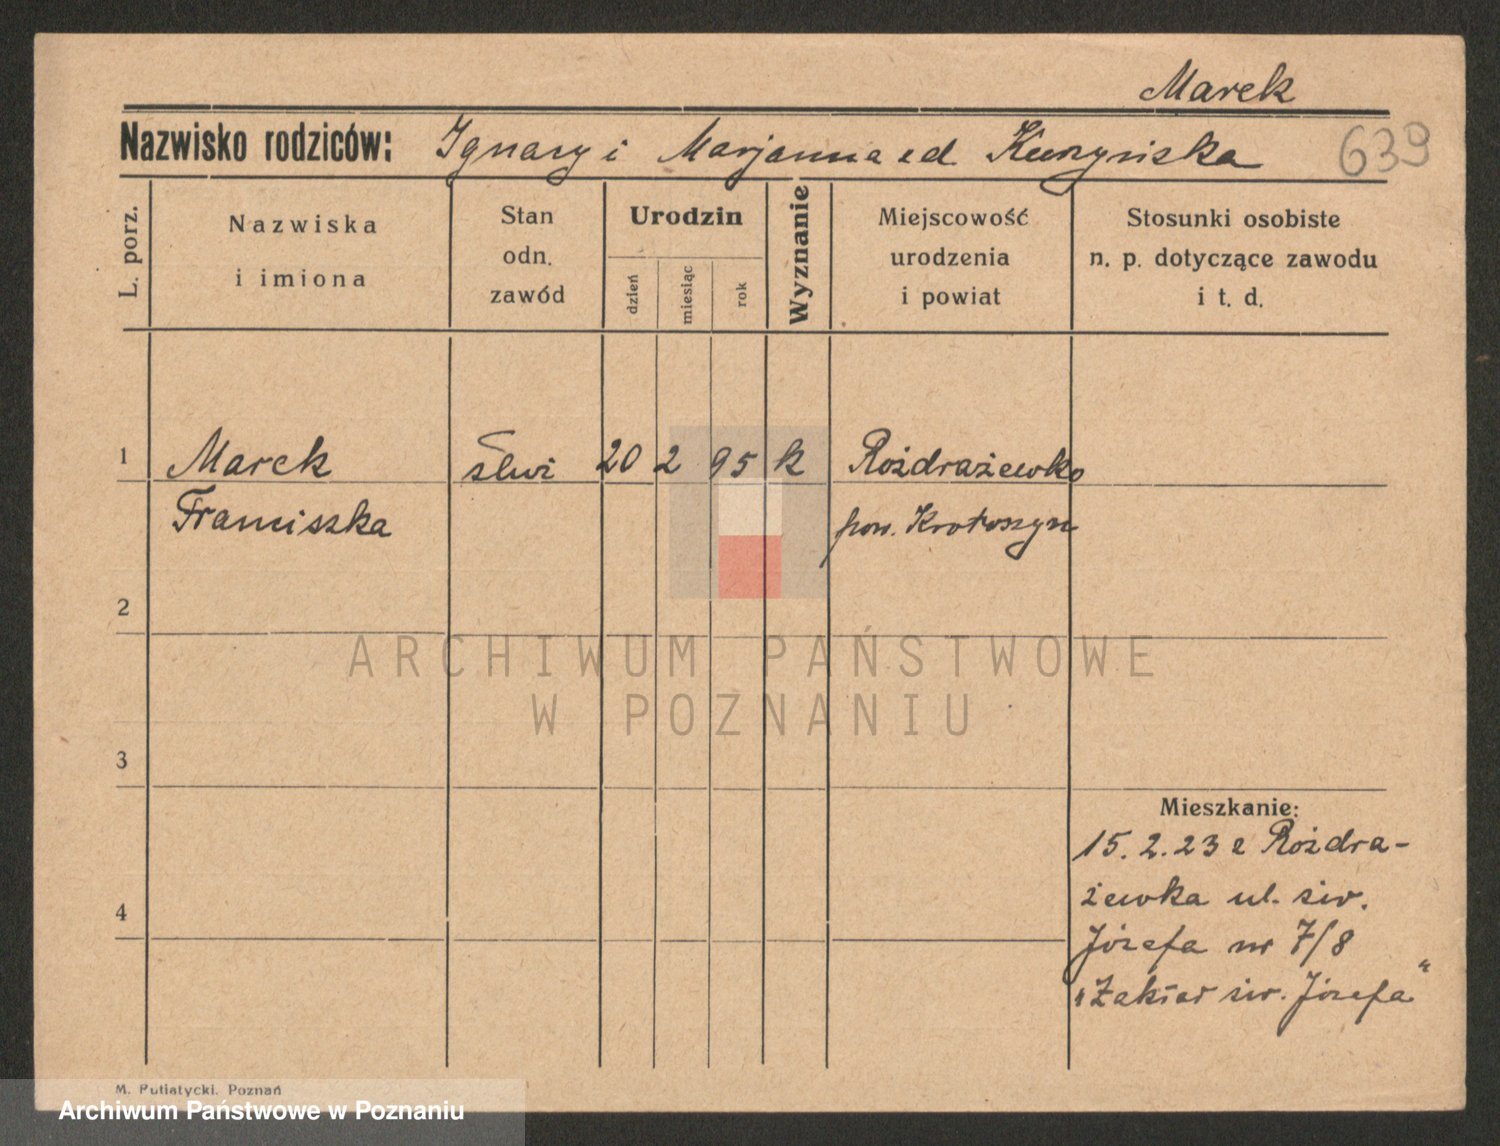 Marek
Nazwisko rodziców: Ignacy i Marjanna z d Kuczyńska
639
L. porz.
Nazwiska
i imiona
Stan
odn.
zawód
Urodzin
dzień
miesiąc
rok
Wyznanie
Miejscowość
urodzenia
i powiat
Stosunki osobiste
n. p. dotyczące zawodu
i t. d.
1 Marek 20 2 95 k Rożdrażewko
Franciszka pow. Krotoszyn
2
ARCHIWUM PAŃSTWOWE
W POZNANIU
3
Mieszkanie:
15.2.23 z Rożdra-
żewka ul. św.
4
Józefa nr 7/8
"Zakład św. Józefa"
M. Putiatycki. Poznań
Archiwum Państwowe w Poznaniu